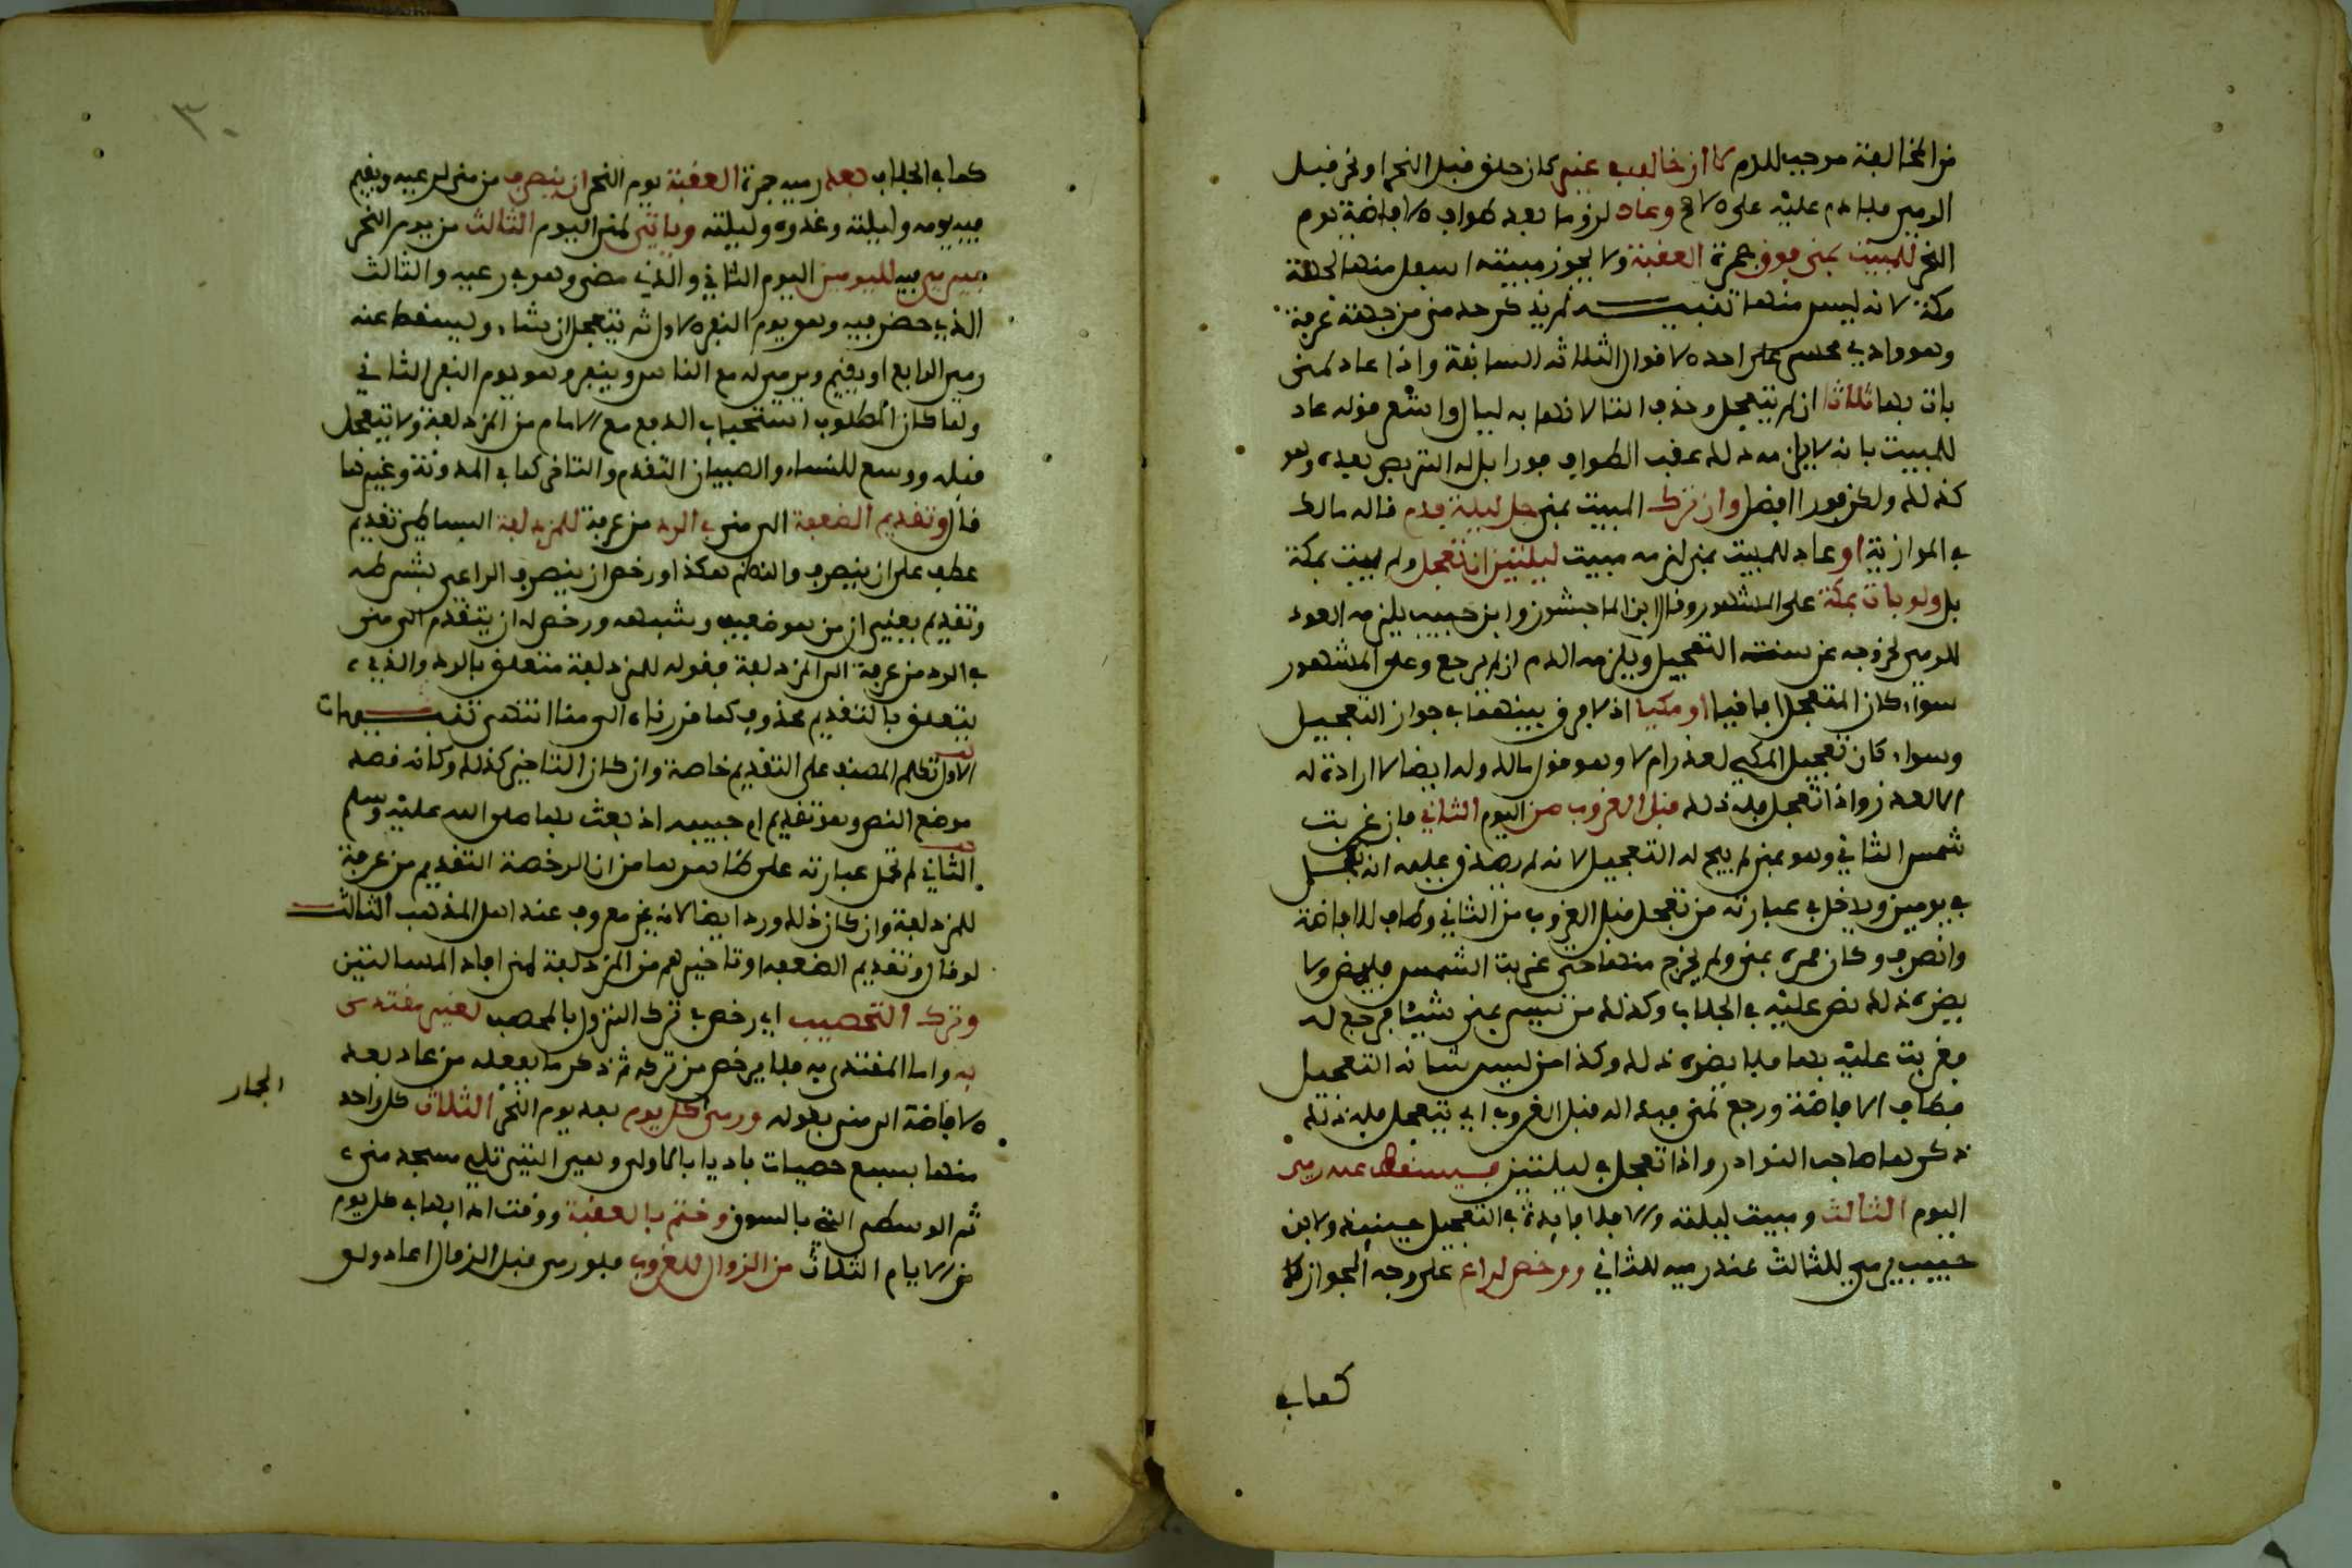 من المخالفة موجب للدم لا ان خالف في غير كان حلق قبل النحر او نحر قبل
الرمي فلا دم عليه على الاصح وعاد لزوما بعد طواف الافاضة يوم
النحر للمبيت بمنى فوق جمرة العقبة ولا يجوز مبيته اسفل منها لجهة
مكة لانه ليس منها تنبيه لم يذكر حد منى من جهة عرفة
وهو وادي محسر على احد الاقوال الثلاثة السابقة واذا عاد لمنى
بات بها ثلاثا ان لم يتعجل وحذف التا لانها به ليال واشعر قوله عاد
للمبيت بانه لا يلزمه ذلك عقب الطواف فورا بل له التربص بعده وهو
كذلك ولكن فورا افضل وان ترك المبيت بمنى جل ليلة فدم قاله مالك
في الموازية او عاد للمبيت بمنى لزمه مبيت ليلتين ان تعجل ولم يبت بمكة
بل ولو بات بمكة على المشهور وقال ابن الماجشون وابن حبيب يلزمه العود
للرمي لخروجه عن سنة التعجيل ويلزمه الدم ان لم يرجع وعلى المشهور
سواء كان المتعجل افاقيا او مكيا اذ لا فرق بينهما في جواز التعجيل
وسواء كان تعجيل المكي لعذر ام لا وهو قول مالك وله ايضا لا ارادة له
الا لعذر واذا تعجل فله ذلك قبل الغروب من اليوم الثاني فان غربت
شمس الثاني وهو بمنى لم يبح له التعجيل لانه لم يصدق عليه انه تعجل
في يومين ويدخل في عبارته من تعجل قبل الغروب من الثاني وطاف للافاضة
وانصرف وكان ممره بمنى ولم يخرج منها حتى غربت الشمس فليمض ولا
يضره ذلك نص عليه في الجلاب وكذلك من نسي بمنى شيئا فرجع له
فغربت عليه بها فلا يضره ذلك وكذا من ليس شانه التعجيل
فطاف الافاضة ورجع لمنى فبدا له قبل الغروب ان يتعجل فله ذلك
ذكرها صاحب النوادر واذا تعجل في ليلتين فيسقط عنه رمي
اليوم الثالث ومبيت ليلته والا فلا فايدة في التعجيل حينئذ ولابن
حبيب يرمي للثالث عند رميه للثاني ورخص لراع على وجه الجواز
كما في
كما في الجلاب بعد رميه جمرة العقبة يوم النحر ان ينصرف من منى لرعيه ويقيم
فيه يومه وليلته وغدوه وليلته وياتي لمنى اليوم الثالث من يوم النحر
فيرمي فيه لليومين اليوم الثاني والذي مضى وهو في رعيه والثالث
الذي حضر فيه وهو يوم النفر الاول ثم يتعجل ان شاء ويسقط عنه
رمي الرابع او يقيم ويرميه مع الناس وينفر وهو يوم النفر الثاني
ولما كان المطلوب استحباب الدفع مع الامام من المزدلفة ولا يتعجل
قبله ووسع للنساء والصبيان التقدم والتاخر كما في المدونة وغيرها
قال وتقديم الضعفة الى منى في الرد من عرفة للمزدلفة البساطي تقديم
عطف على ان ينصرف والنظم هكذا ورخص ان ينصرف الراعي بشرطه
وتقديم بمعنى ان من هو ضعيف وشبهه ورخص له ان يتقدم الى منى
في الرد من عرفة الى المزدلفة فقوله للمزدلفة متعلق بالرد والذي
يتعلق بالتقديم محذوف كما قررناه الى منا انتهى تنبيهات
الاول تكلم المصنف على التقديم خاصة وان كان التاخير كذلك وكانه قصد
موضع النص وهو تقديم ام حبيبة اذ بعث بها صلى الله عليه وسلم
الثاني لم تحمل عبارته على ظاهرها من ان الرخصة التقديم من عرفة
للمزدلفة وان كان ذلك ورد ايضا لانه غير معروف عند اهل المذهب الثالث
لو قال وتقديم الضعفة او تاخيرهم من المزدلفة لمنى افاد المسالتين
وترك التحصيب اي رخص في ترك النزول بالمحصب لغير مقتدى
به واما المقتدى به فلا يرخص من تركه ثم ذكر ما يفعله من عاد بعد
الافاضة الى منى بقوله ورمى كل يوم بعد يوم النحر الثلاث كل واحد
الجمار
منها بسبع حصيات باديا بالاولى وهي التي تلي مسجد منى
ثم الوسطى التي بالسوق وختم بالعقبة ووقت ادايها في كل يوم
من الايام الثلاث من الزوال للغروب فلو رمى قبل الزوال اعاد ولو